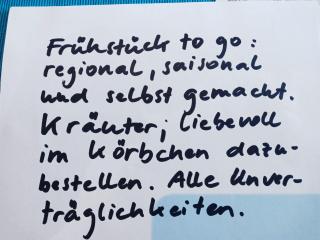 Frühstück to go:
regional, saisonal
und selbst gemacht.
Kräuter, liebevoll
im Körbchen dazu-
bestellen. Alle Unver-
träglichkeiten.